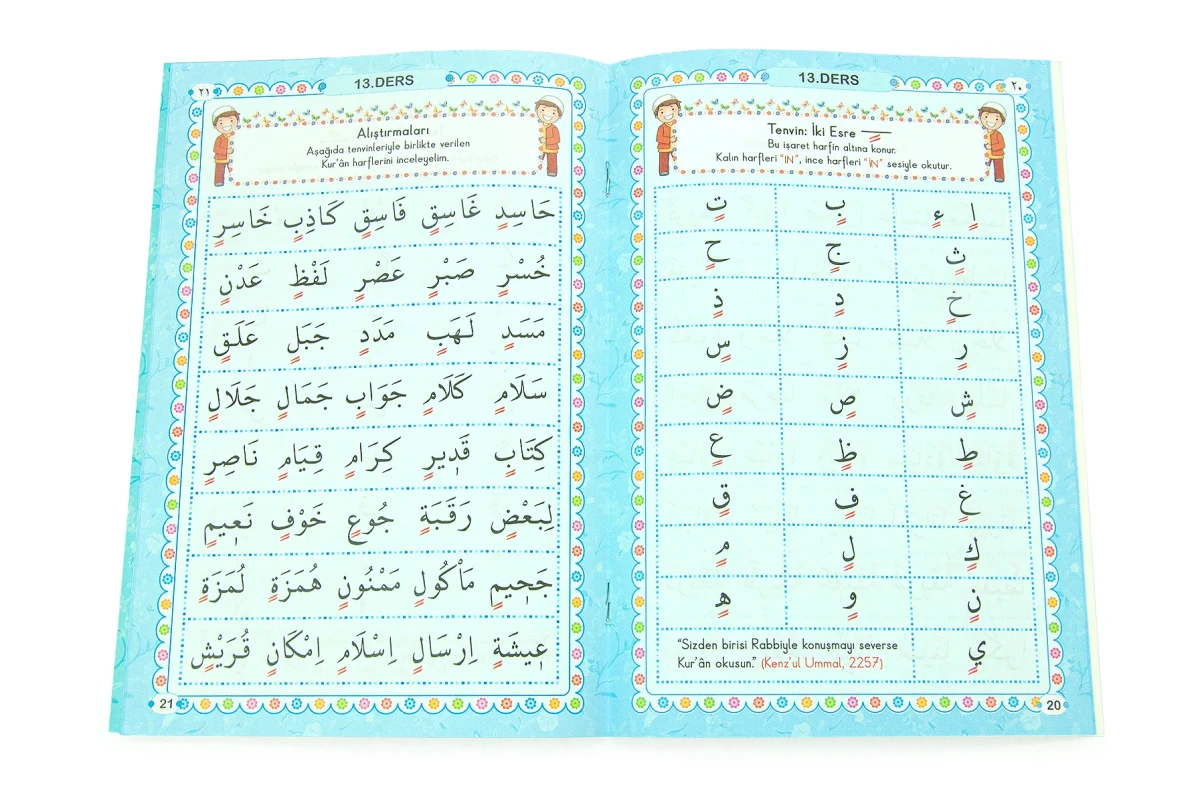 ٢٠
13.DERS
Tenvin: İki Esre ــٍـ
Bu işaret harfin altına konur.
Kalın harfleri “IN”, ince harfleri “İN” sesiyle okutur.
اٍ ءٍ بٍ تٍ
ثٍ جٍ حٍ
خٍ دٍ ذٍ
رٍ زٍ سٍ
شٍ صٍ ضٍ
طٍ ظٍ عٍ
غٍ فٍ قٍ
كٍ لٍ مٍ
نٍ وٍ هٍ
يٍ
“Sizden birisi Rabbiyle konuşmayı severse
Kur’ân okusun.” (Kenz’ul Ummal, 2257)
20
٢١
13.DERS
Alıştırmaları
Aşağıda tenvinleriyle birlikte verilen
Kur’ân harflerini inceleyelim.
حَاسِدٍ غَاسِقٍ فَاسِقٍ كَاذِبٍ خَاسِرٍ
خُسْرٍ صَبْرٍ عَصْرٍ لَفْظٍ عَدْنٍ
مَسَدٍ لَهَبٍ مَدَدٍ جَبَلٍ عَلَقٍ
سَلَامٍ كَلَامٍ جَوَابٍ جَمَالٍ جَلَالٍ
كِتَابٍ قَدٖيرٍ كِرَامٍ قِيَامٍ نَاصِرٍ
لِبَعْضٍ رَقَبَةٍ جُوعٍ خَوْفٍ نَعٖيمٍ
جَحٖيمٍ مَاْكُولٍ مَمْنُونٍ هُمَزَةٍ لُمَزَةٍ
عٖيشَةٍ اِرْسَالٍ اِسْلَامٍ اِمْكَانٍ قُرَيْشٍ
21